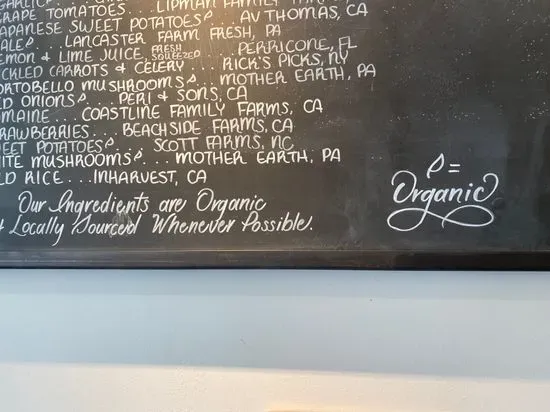 GRAPE TOMATOES... LIPMAN FAMILY
JAPANESE SWEET POTATOES... AV THOMAS, CA
ALE... LANCASTER FARM FRESH, PA
EMON & LIME JUICE FRESH SQUEEZED... PERRICONE, FL
CKLED CARROTS & CELERY... RICK'S PICKS, NY
ORTOBELLO MUSHROOMS... MOTHER EARTH, PA
ED ONIONS... PERI & SONS, CA
OMAINE... COASTLINE FAMILY FARMS, CA
RAWBERRIES... BEACHSIDE FARMS, CA
EET POTATOES... SCOTT FARMS, NC
ITE MUSHROOMS... MOTHER EARTH, PA
LD RICE... INHARVEST, CA
Our Ingredients are Organic
& Locally Sourced Whenever Possible.
=
Organic